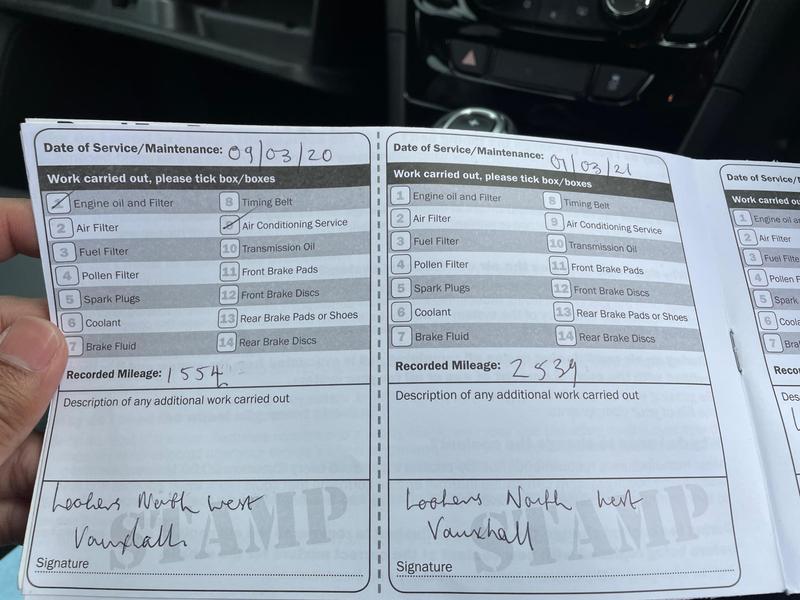 Date of Service/Maintenance: 09/03/20
Work carried out, please tick box/boxes
Engine oil and Filter
8 Timing Belt
2 Air Filter
Air Conditioning Service
3 Fuel Filter
10 Transmission Oil
4 Pollen Filter
11 Front Brake Pads
5 Spark Plugs
12 Front Brake Discs
6 Coolant
13 Rear Brake Pads or Shoes
7 Brake Fluid
14 Rear Brake Discs
Recorded Mileage: 1554
Description of any additional work carried out
Lookers North West
Vauxhall
STAMP
Signature
Date of Service/Maintenance: 01/03/21
Work carried out, please tick box/boxes
1 Engine oil and Filter
8 Timing Belt
2 Air Filter
9 Air Conditioning Service
3 Fuel Filter
10 Transmission Oil
4 Pollen Filter
11 Front Brake Pads
5 Spark Plugs
12 Front Brake Discs
6 Coolant
13 Rear Brake Pads or Shoes
7 Brake Fluid
14 Rear Brake Discs
Recorded Mileage: 2539
Description of any additional work carried out
Lookers North West
Vauxhall
STAMP
Signature
Date of Service/
Work carried ou
1 Engine oil and
2 Air Filter
3 Fuel Filte
4 Pollen F
5 Spark
6 Cool
7 Bra
Reco
Des